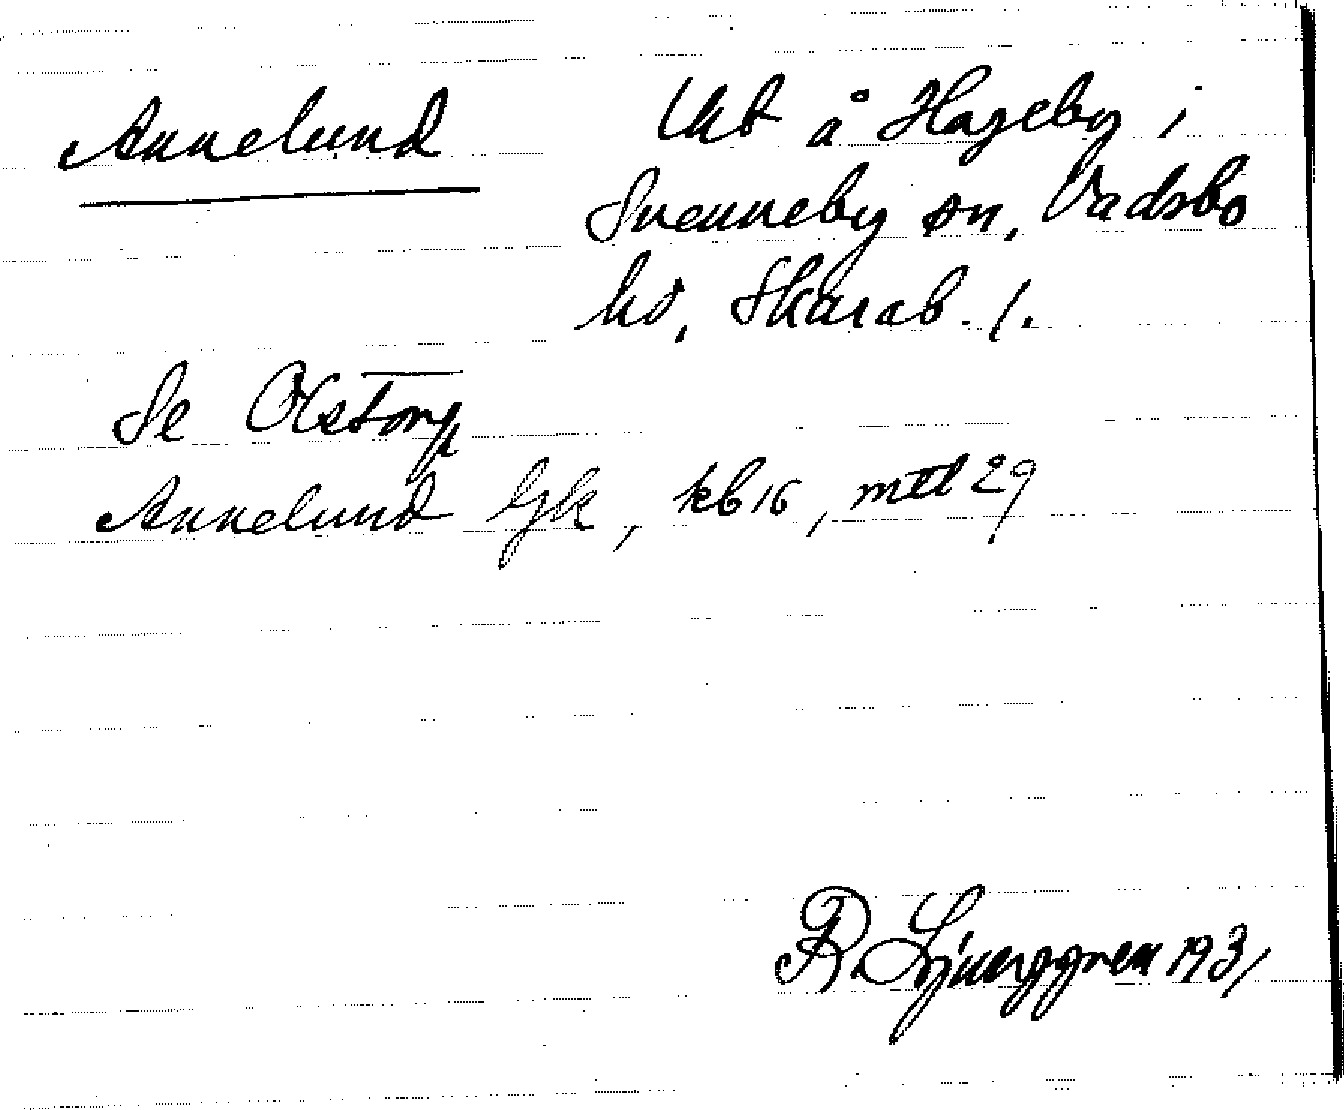 Annelund Utb å Hageby i
Svenneby sn, Vadsbo
hd, Skarab. l.
Se Olstorp
Annelund lgh, kb 16, mtl 29
R. Ljunggren 1931